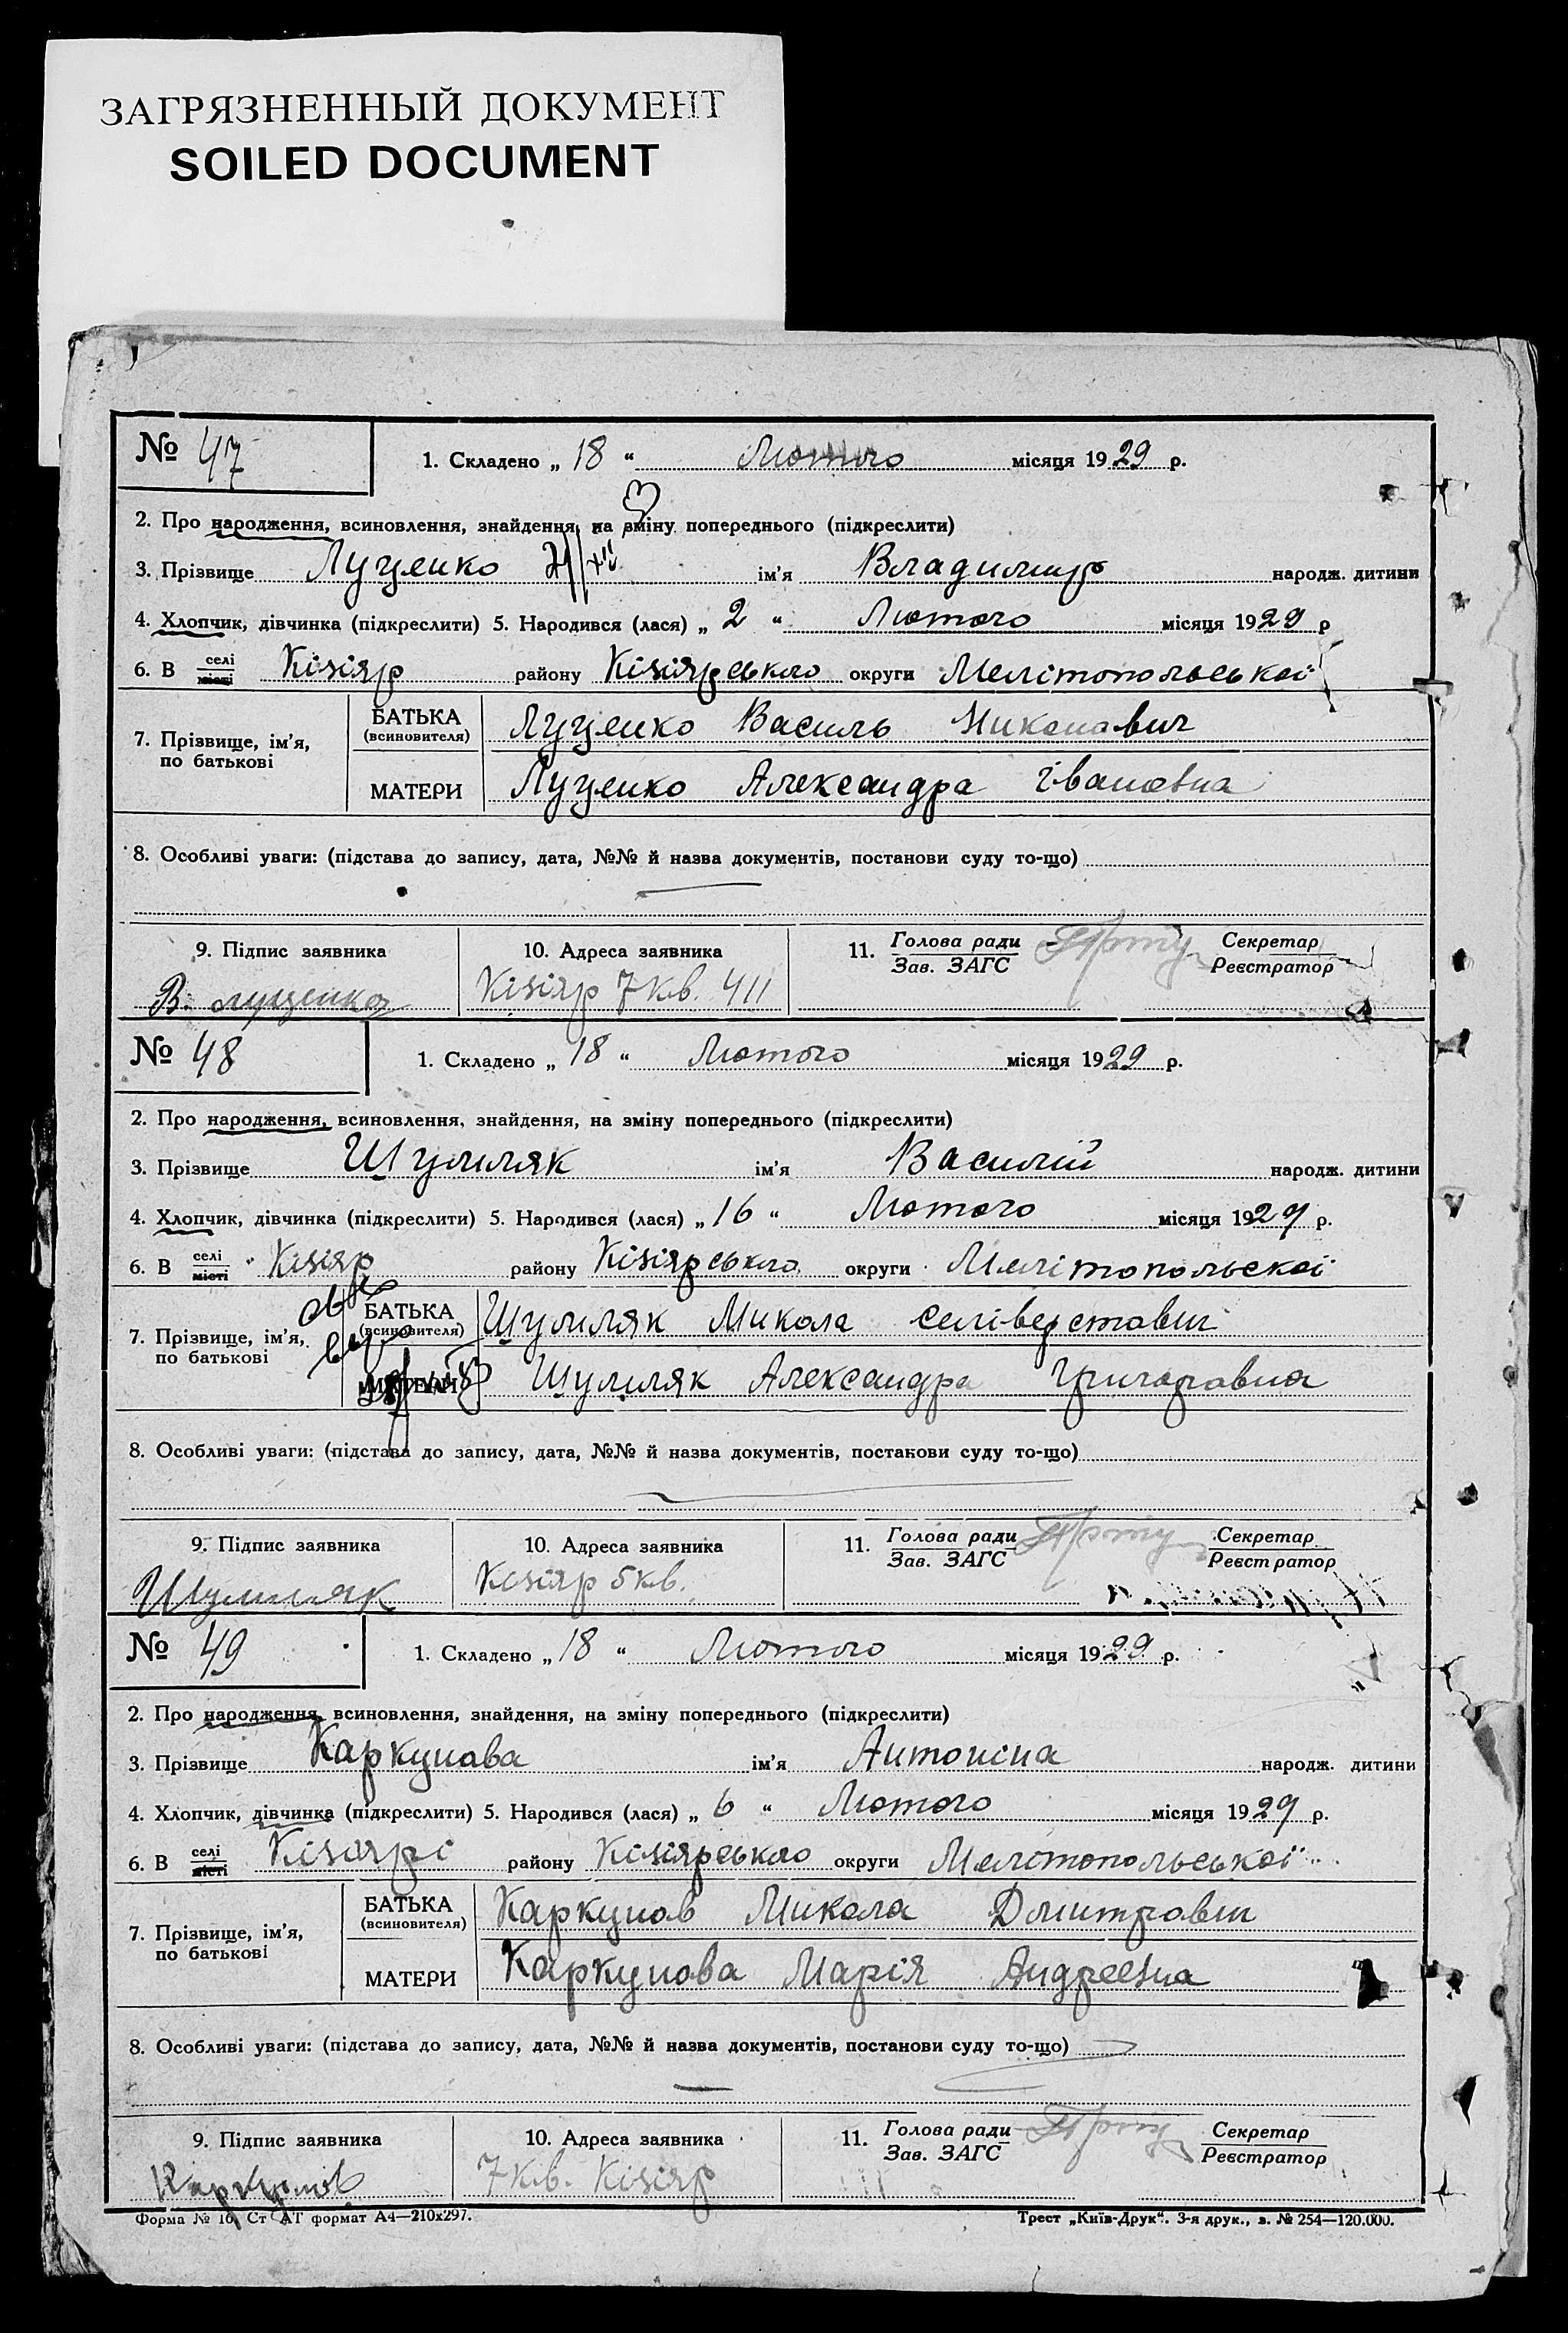 ЗАГРЯЗНЕННЫЙ ДОКУМЕНТ
SOILED DOCUMENT
№ 47
1. Складено „ 18 “ Лютого місяця 1929 р.
2. Про народження, всиновлення, знайдення, на зміну попереднього (підкреслити)
3. Прізвище Луценко ім’я Владимир народж. дитини
4. Хлопчик, дівчинка (підкреслити) 5. Народився (лася) „ 2 “ Лютого місяця 1929 р
6. В селі місті Кізіяр району Кізіярського округи Мелітопольської
7. Прізвище, ім’я, по батькові
БАТЬКА (всиновителя) Луценко Василь
МАТЕРИ Луценко Александра Івановна
8. Особливі уваги: (підстава до запису, дата, №№ й назва документів, постанови суду то-що)
9. Підпис заявника
10. Адреса заявника
11. Голова ради Зав. ЗАГС Секретар Реєстратор
В. Луценко
Кізіяр 7 кв. 411
№ 48
1. Складено „ 18 “ Лютого місяця 1929 р.
2. Про народження, всиновлення, знайдення, на зміну попереднього (підкреслити)
3. Прізвище Шумляк ім’я Василий народж. дитини
4. Хлопчик, дівчинка (підкреслити) 5. Народився (лася) „ 16 “ Лютого місяця 1929 р.
6. В селі місті Кізіяр району Кізіярського округи Мелітопольскої
7. Прізвище, ім’я, по батькові
БАТЬКА (всиновителя) Шумляк Микола Селіверстович
МАТЕРИ Шумляк Александра Григоровна
8. Особливі уваги: (підстава до запису, дата, №№ й назва документів, постанови суду то-що)
9. Підпис заявника
10. Адреса заявника
11. Голова ради Зав. ЗАГС Секретар Реєстратор
Шумляк
Кізіяр 5 кв.
№ 49
1. Складено „ 18 “ Лютого місяця 1929 р.
2. Про народження, всиновлення, знайдення, на зміну попереднього (підкреслити)
3. Прізвище Каркунова ім’я Антоніна народж. дитини
4. Хлопчик, дівчинка (підкреслити) 5. Народився (лася) „ 6 “ Лютого місяця 1929 р.
6. В селі місті Кізіярі району Кізіярського округи Мелітопольської
7. Прізвище, ім’я, по батькові
БАТЬКА (всиновителя) Каркунов Микола Дмитрович
МАТЕРИ Каркунова Марія Андреевна
8. Особливі уваги: (підстава до запису, дата, №№ й назва документів, постанови суду то-що)
9. Підпис заявника
10. Адреса заявника
11. Голова ради Зав. ЗАГС Секретар Реєстратор
Каркунов
7 кв. Кізіяр
Форма № 16, Ст АТ формат А4—210х297.
Трест „Київ-Друк“. 3-я друк., з. № 254—120.000.